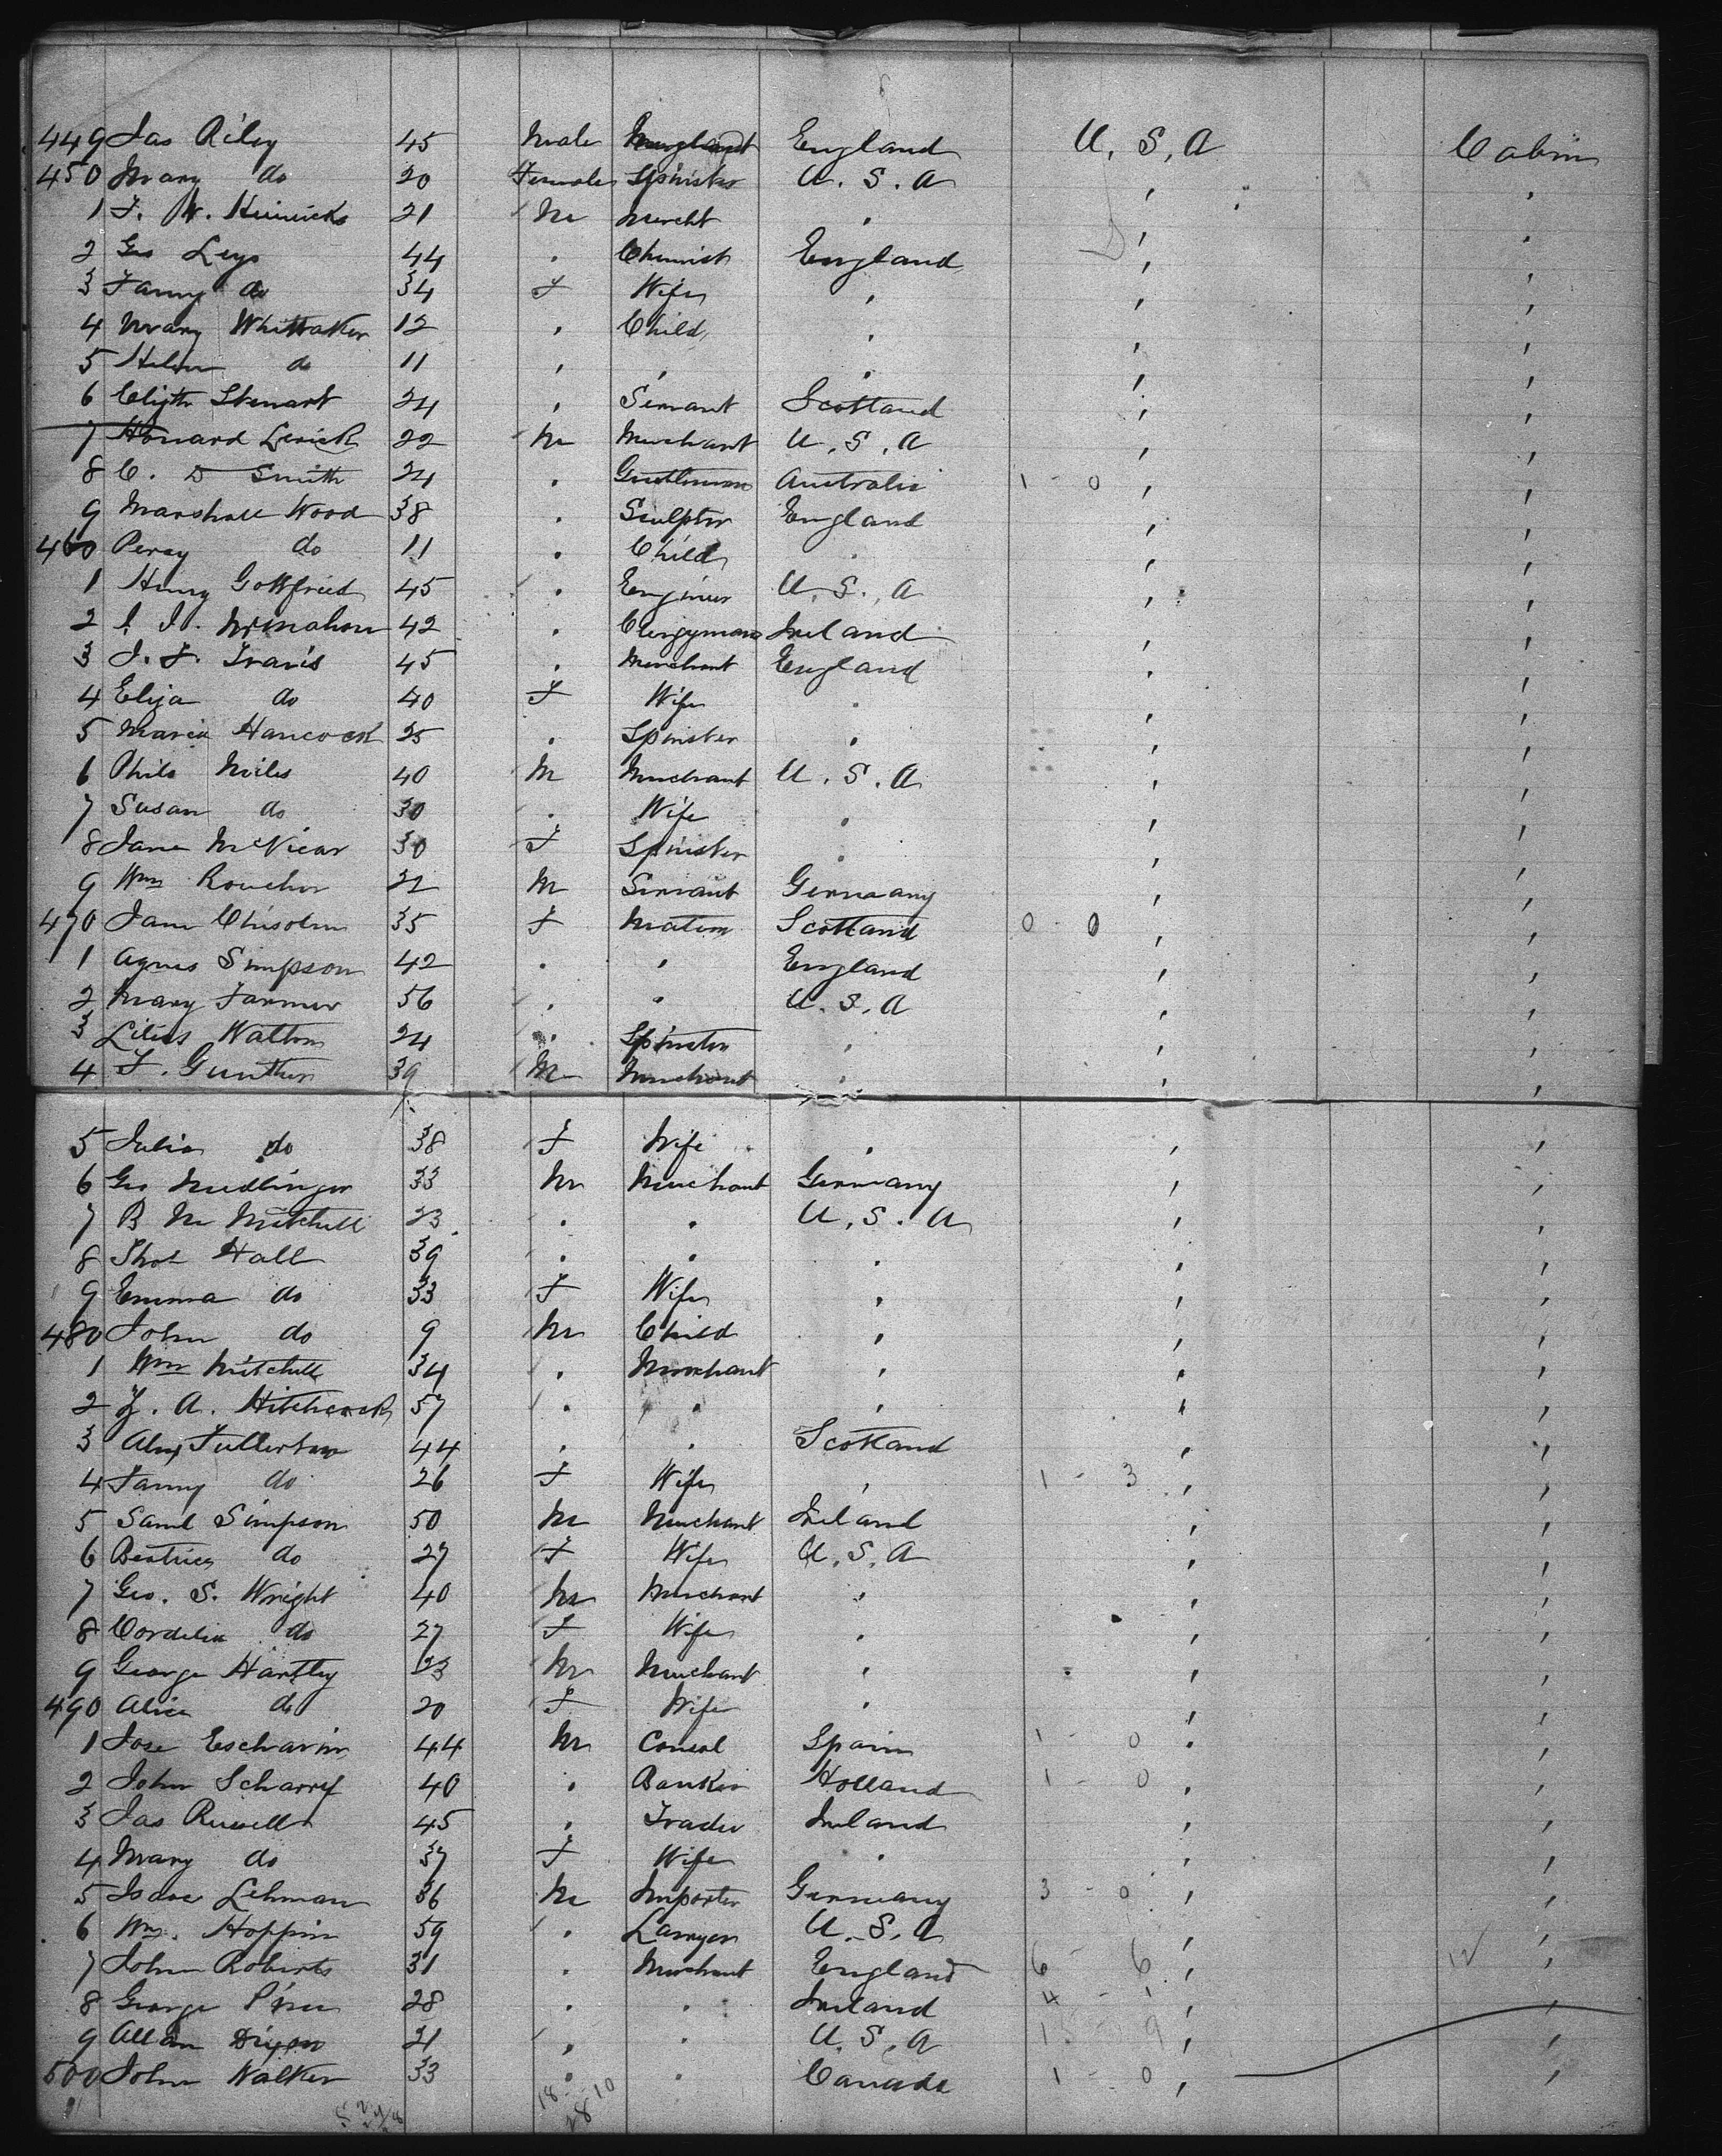 449 Jas Riley 45 Male England U. S. A Cabin
450 Mary do 20 Female Spinster U. S. A , ,
1 F. W. Hinricks 21 M Mercht , , ,
2 Geo Leys 44 . Chemist England , ,
3 Fanny do 34 F Wife , , ,
4 Mary Whittaker 12 , Child , , ,
5 Helen do 11 , , , , ,
6 Stewart 24 , Servant Scotland , ,
7 Howard 22 M Merchant U. S. A , ,
8 C. D Smith 24 . Gentleman Australia 1 - 0 , ,
9 Marshall Wood 38 . Sculptor England , ,
460 Percy do 11 . Child . , ,
1 Henry Gottfried 45 . Engineer U. S. A , ,
2 42 . Clergyman Ireland , ,
3 J. F. Travis 45 . Merchant England , ,
4 Eliza do 40 F Wife . , ,
5 Maria Hancock 25 . Spinster . , ,
6 Philo Miles 40 M Merchant U. S. A , ,
7 Susan do 30 . Wife . , ,
8 Jane McVicar 30 F Spinster . , ,
9 Wm 22 M Servant Germany , ,
470 Jane Chisolm 35 F Matron Scotland 0 - 0 , ,
1 Agnes Simpson 42 . , England , ,
2 Mary Farmer 56 . . U. S. A , ,
3 Lilias Walton 24 . Spinster , , ,
4 F. Gunther 39 M Merchant , , ,
5 Julia do 38 F Wife . , ,
6 Geo 33 M Merchant Germany , ,
7 B M Mitchell 23 . . U. S. A , ,
8 Thos Hall 39 . . . , ,
9 Emma do 33 F Wife , , ,
480 John do 9 M Child , , ,
1 Wm Mitchell 34 . Merchant , , ,
2 A. Hitchcock 57 . . , , ,
3 Alex Fullerton 44 . . Scotland , ,
4 Fanny do 26 F Wife , 1 - 3 , ,
5 Saml Simpson 50 M Merchant Ireland , ,
6 Beatrice do 27 F Wife U. S. A , ,
7 Geo. S. Wright 40 M Merchant , , ,
8 Cordelia do 27 F Wife , , ,
9 George Hartley 23 M Merchant , , ,
490 Alice do 20 F Wife , , ,
1 Jose 44 M Consul Spain 1 - 0 , ,
2 John 40 . Banker Holland 1 - 0 , ,
3 Jas Russell 45 , Trader Ireland , ,
4 Mary do 37 F Wife . , ,
5 Isaac Lehman 36 M Importer Germany 3 - 0 , ,
6 Wm. Hoppin 59 . Lawyer U. S. A , ,
7 John Roberts 31 . Merchant England 6 - 6 , ,
8 George 28 . . Ireland 4 - 1 , ,
9 Allan Dixon 21 , . U. S. A 1 - 9 , ,
500 John Walker 33 . . Canada 1 - 0 , ,
18 - 10
28